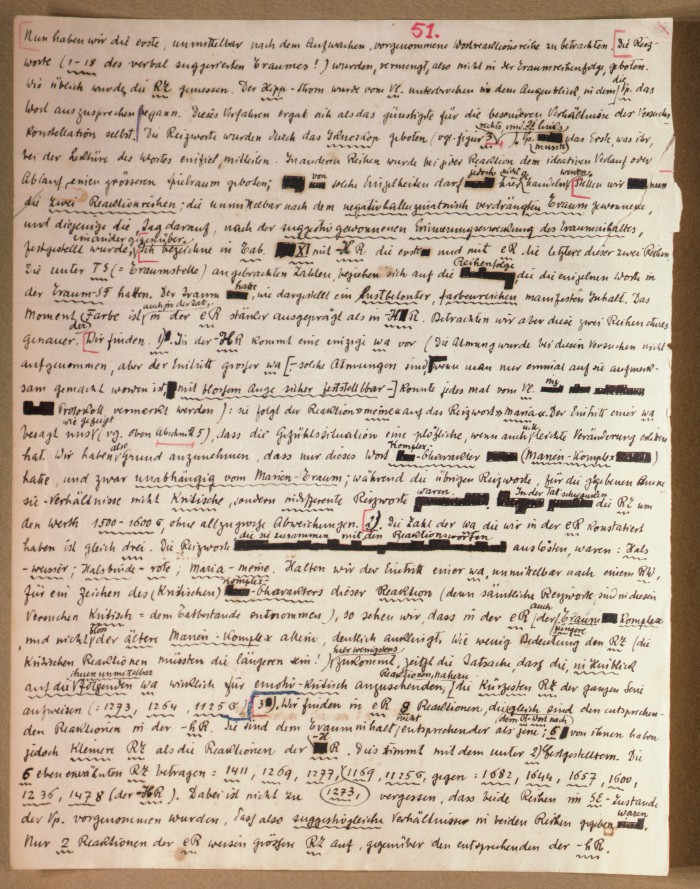 51.
Nun haben wir die erste, unmittelbar nach dem Aufwachen, vorgenommene Wortreaktionsreihe zu betrachten. Die Reiz-
worte (1-18 des verbal suggerierten Traumes!) wurden, vermengt, also nicht in der Traumreihenfolge, geboten.
Wie üblich wurden die RZ gemessen. Der Hipp-Strom wurde vom Vl. unterbrochen in dem Augenblick, in dem die Vp. das
Wort auszusprechen begann. Dieses Verfahren ergab sich als das günstigste für die besonderen Verhältnisse der Versuchs
Konstellation selbst. Die Reizworte wurden durch das geboten (vg. figur 3) Vp. musste das Erste, was ihr,
bei der Lektüre des Wortes einfiel, mitteilen. In anderen Reihen wurde bei jeder Reaktion dem ideativen Verlauf oder
Ablauf, einen grösseren Spielraum geboten; von solche Einzelheiten darf jedoch hier nicht gehandelt werden. Stellen wir nun
die zwei Reaktionsreihen; die unmittelbar nach dem negativhalluzinatorisch verdrängten Traum gewonnene,
und diejenige die, Tag darauf, nach der suggestiv gewonnenen Erinnerungserweckung des Traumhaltes,
festgestellt wurde, einander gegenüber. Ich bezeichne in Tab. XI mit -HR die erste und mit eR die letztere dieser zwei Reihen.
Die unter TS (= Traumstelle) angebrachten Zahlen, beziehen sich auf die Reihenfolge die die einzelnen Worte in
der Traum-ST hatten. Der Traum habe, wie dargestellt ein lustbetonter, farbenreichen manifesten Inhalt. Das
Moment (Farbe ist auch in der Tat, in der eR stärker ausgeprägt als in HR. Betrachten wir aber diese zwei Reihen etwas
genauer. Wir finden. 1). In der -HR kommt eine einzige wa vor (Die Atmung wurde bei diesen Versuchen nicht
aufgenommen, aber der Eintritt grosser wa [- solche Atmungen sind, wenn man nur einmal auf sie aufmerk-
sam gemacht worden ist, mit blossem Auge sicher feststellbar -] konnte jedes mal vom Vl. ins
Protokoll vermerkt werden): sie folgt der Reaktion » meine « auf das Reizwort » Maria «. Der Eintritt einer wa
besagt uns wie gesagt (vg. oben Abschnitt 5), dass die Gefühlssituation eine plötzliche, wenn auch leichte Veränderung erlitten
hat. Wir haben also Grund anzunehmen, dass nur dieses Wort Komplex-charakter (Marien-Komplex)
hatte, und zwar unabhängig vom Marien-Traum; während die übrigen Reizworte, für die gegebenen Bewusst-
seins-Verhältnisse nicht Kritische, sondern indifferente Reizworte waren. In der Tat schwanken die RZ um
den Werth 1500-1600 σ, ohne allzugrosse Abweichungen. 2) Die Zahl der wa, die wir in der eR konstatiert
haben ist gleich drei. Die Reizworte die sie zusammen mit den Reaktionsworten auslösten, waren: Hals
-weisser; Halsbinde-rote; Maria-meine. Halten wir der Eintritt einer wa, unmittelbar nach einem RW,
für ein Zeichen des (Kritischen) Komplex-charakters dieser Reaktion (denn sämtliche Reizworte sind in diesen
Versuchen Kritisch = dem Tatbestande entnommen), so sehen wir, dass in der eR auch (der jüngere) Traum Komplex
und nicht bloss der ältere Marien-Komplex allein, deutlich anklingt. Wie wenig Bedeutung den RZ (die
kritischen Reaktionen müssten die längeren sein!) hier wenigstens zukommt, zeigt die Tatsache, dass die, im Hinblick
auf die ihnen unmittelbar folgenden wa wirklich für emotiv-kritisch anzusehenden Reaktionen, nahezu die kürzesten RZ der ganzen Serie
aufweisen (: 1273, 1264, 1125 σ). 3). Wir finden in eR 8 Reaktionen, die gleich sind den entsprechen-
den Reaktionen in der -hR. Sie sind dem Trauminhalt nicht entsprechender als jene; 6 von ihnen haben
jedoch kleinere RZ als die Reaktionen der -HR. Dies stimmt mit dem unter 2) Festgestellten. Die
6 eben erwähnten RZ betragen: 1411, 1269, 1277, 1169, 1125 σ, gegen: 1682, 1644, 1657, 1600,
1236, 1478 (der -HR). Dabei ist nicht zu 1273, vergessen, dass beide Reihen im SE-Zustande
der Vp. vorgenommen wurden, dass also suggestibele Verhältnisse in beiden Reihen gegeben waren.
Nur 2 Reaktionen der eR weisen grössere RZ auf, gegenüber den entsprechenden der -hR.